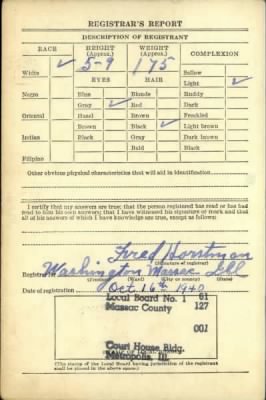 REGISTRAR'S REPORT
DESCRIPTION OF REGISTRANT
RACE HEIGHT (Approx.) WEIGHT (Approx.) COMPLEXION
White ✓ 5-9 175 Sallow
EYES HAIR Light ✓
Negro Blue Blonde Ruddy
Gray ✓ Red Dark
Oriental Hazel Brown Freckled
Brown Black ✓ Light brown
Indian Black Gray Dark brown
Bald Black
Filipino
Other obvious physical characteristics that will aid in identification
I certify that my answers are true; that the person registered has read or has had
read to him his own answers; that I have witnessed his signature or mark and that
all of his answers of which I have knowledge are true, except as follows:
Fred Horstman
(Signature of registrar)
Registrar for Washington Massac Ill
(Precinct) (Ward) (City or county) (State)
Date of registration Oct 16th 1940
Local Board No. 1 61
Massac County 127
001
Court House Bldg.
Metropolis, Ill.
(The stamp of the Local Board having jurisdiction of the registrant
shall be placed in the above space)